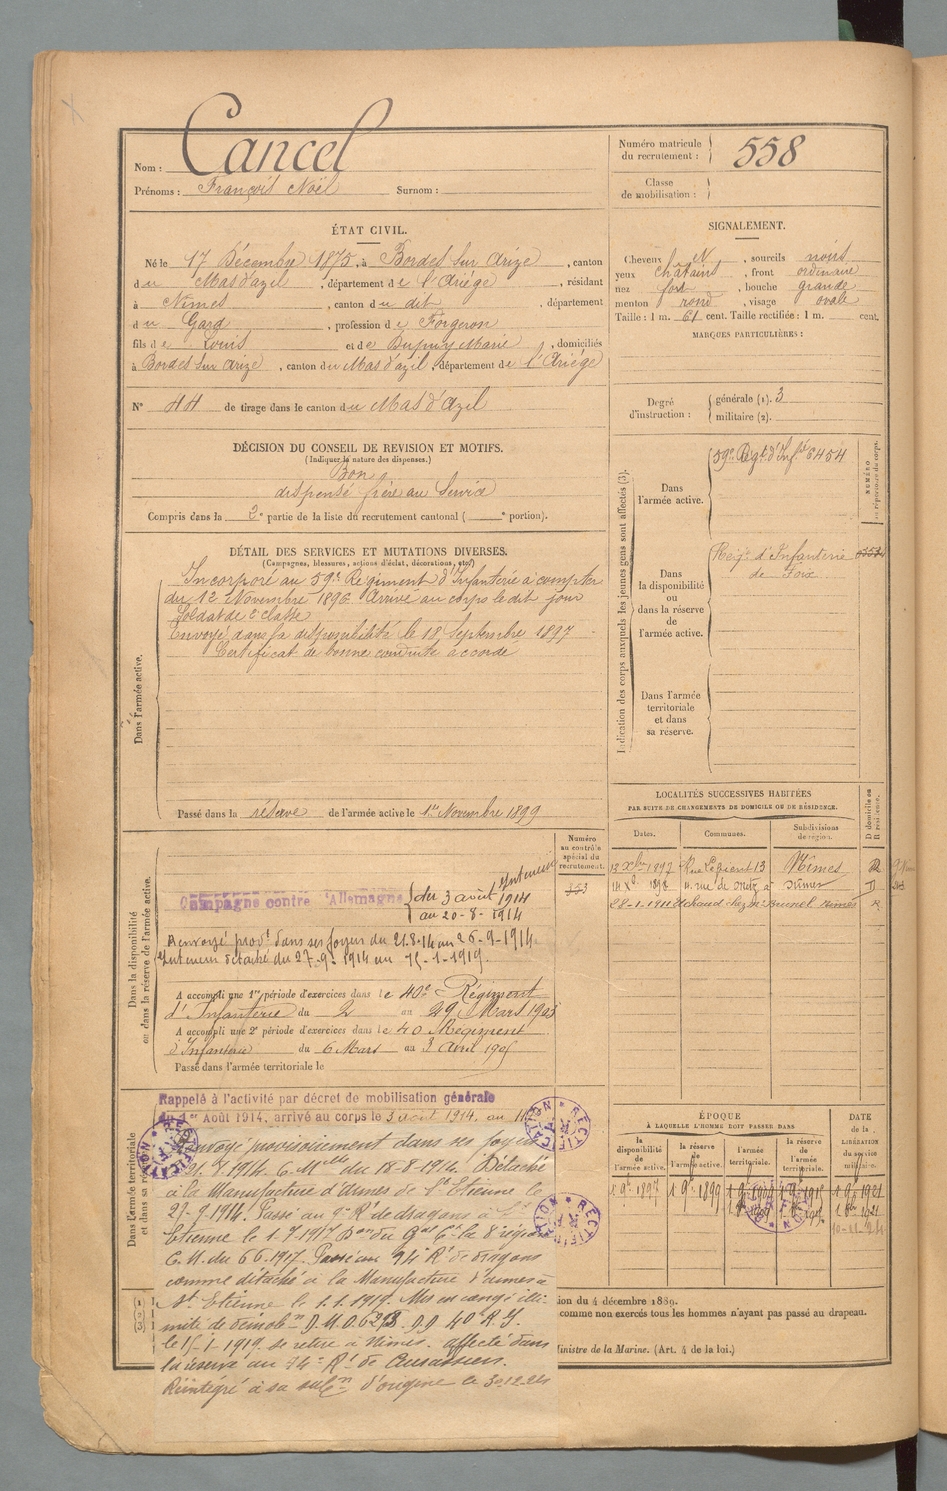 Nom : Cancel
Prénoms : François Noël Surnom :
Numéro matricule du recrutement : 558
Classe de mobilisation :
ÉTAT CIVIL.
Né le 17 Décembre 1875, à Bordes sur Arize, canton
du Mas d'azil, département de l'Ariège, résidant
à Nimes, canton du dit, département
du Gard, profession de Forgeron
fils de Louis et de Dupuy Marie, domiciliés
à Bordes sur Arize, canton du Mas d'azil, département de l'Ariège
N° 44 de tirage dans le canton du Mas d'Azil
SIGNALEMENT.
Cheveux N, sourcils noirs
yeux châtains, front ordinaire
nez fort, bouche grande
menton rond, visage ovale
Taille : 1 m. 61 cent. Taille rectifiée : 1 m. cent.
MARQUES PARTICULIÈRES :
Degré d'instruction : générale (1). 3
militaire (2).
DÉCISION DU CONSEIL DE REVISION ET MOTIFS.
(Indiquer la nature des dispenses.)
Bon
dispensé frère au Service
Compris dans la 2e partie de la liste du recrutement cantonal ( e portion).
DÉTAIL DES SERVICES ET MUTATIONS DIVERSES.
(Campagnes, blessures, actions d'éclat, décorations, etc.)
Dans l'armée active.
Incorporé au 59e Régiment d'Infanterie à compter
du 12 Novembre 1896. Arrivé au corps le dit jour
Soldat de 2e classe
Envoyé dans la disponibilité le 18 Septembre 1897
Certificat de bonne conduite accordé
Passé dans la réserve de l'armée active le 1er Novembre 1899
Indication des corps auxquels les jeunes gens sont affectés (3).
NUMÉRO au répertoire du corps.
Dans l'armée active.
59e Régt d'Infie 8454
Dans la disponibilité ou dans la réserve de l'armée active.
Regt d'Infanterie
de Foix
Dans l'armée territoriale et dans sa réserve.
LOCALITÉS SUCCESSIVES HABITÉES
PAR SUITE DE CHANGEMENTS DE DOMICILE OU DE RÉSIDENCE.
D domicile ou R résidence.
Dates. Communes. Subdivisions de région.
13 Xbre 1897 Rue 13 Nîmes R
1898 rue de Nimes D
28-1-1911 Uchaud chez Mr Brunel Nimes R
Dans la disponibilité ou dans la réserve de l'armée active.
Numéro au contrôle spécial du recrutement.
Intérieur
Campagne contre l'Allemagne du 3 août 1914
au 20-8-1914
Renvoyé provt dans ses foyers du 21.8.14 au 26-9-1914
Intérieur détaché du 27-9-1914 au 15-1-1919.
A accompli une 1re période d'exercices dans le 40e Régiment
d'Infanterie du 2 au 29 Mars 1903
A accompli une 2e période d'exercices dans le 40 Régiment
d'Infanterie du 6 Mars au 2 Avril 190
Passé dans l'armée territoriale le
Dans l'armée territoriale et dans sa
Rappelé à l'activité par décret de mobilisation générale
du 1er Août 1914, arrivé au corps le 3 août 1914, au
Renvoyé provisoirement dans ses foyers
21.8.1914. C. Melle du 18-8-1914. Détaché
à la Manufacture d'armes de St Etienne le
27-9-1914. Passé au 9e Rt de dragons à St
Etienne le 1.7.1917 Don du Gal Ct la 8e région
C.M. du 6 6.1917. Passé au Rt de dragons
comme détaché à la Manufacture d'armes à
St Etienne le 1.1.1919. Mis en congé illi-
mité de démobon D.M.D. D.D 40 R.I.
le 15-1-1919. se retire à Nimes. affecté dans
la réserve au Rt de Cuirassiers.
Réintégré à sa subon d'origine le 30.12.21
RECTIFICATION
RECTIFICATION
RECTIFICATION
ÉPOQUE
À LAQUELLE L'HOMME DOIT PASSER DANS
la disponibilité de l'armée active. la réserve de l'armée active. l'armée territoriale. la réserve de l'armée territoriale.
DATE de la LIBÉRATION du service militaire.
1 9bre 1897 1 9bre 1899 1 9bre 1921
10-11-24
RECTIFICATION
ion du 4 décembre 1889.
comme non exercés tous les hommes n'ayant pas passé au drapeau.
Ministre de la Marine. (Art. 4 de la loi.)